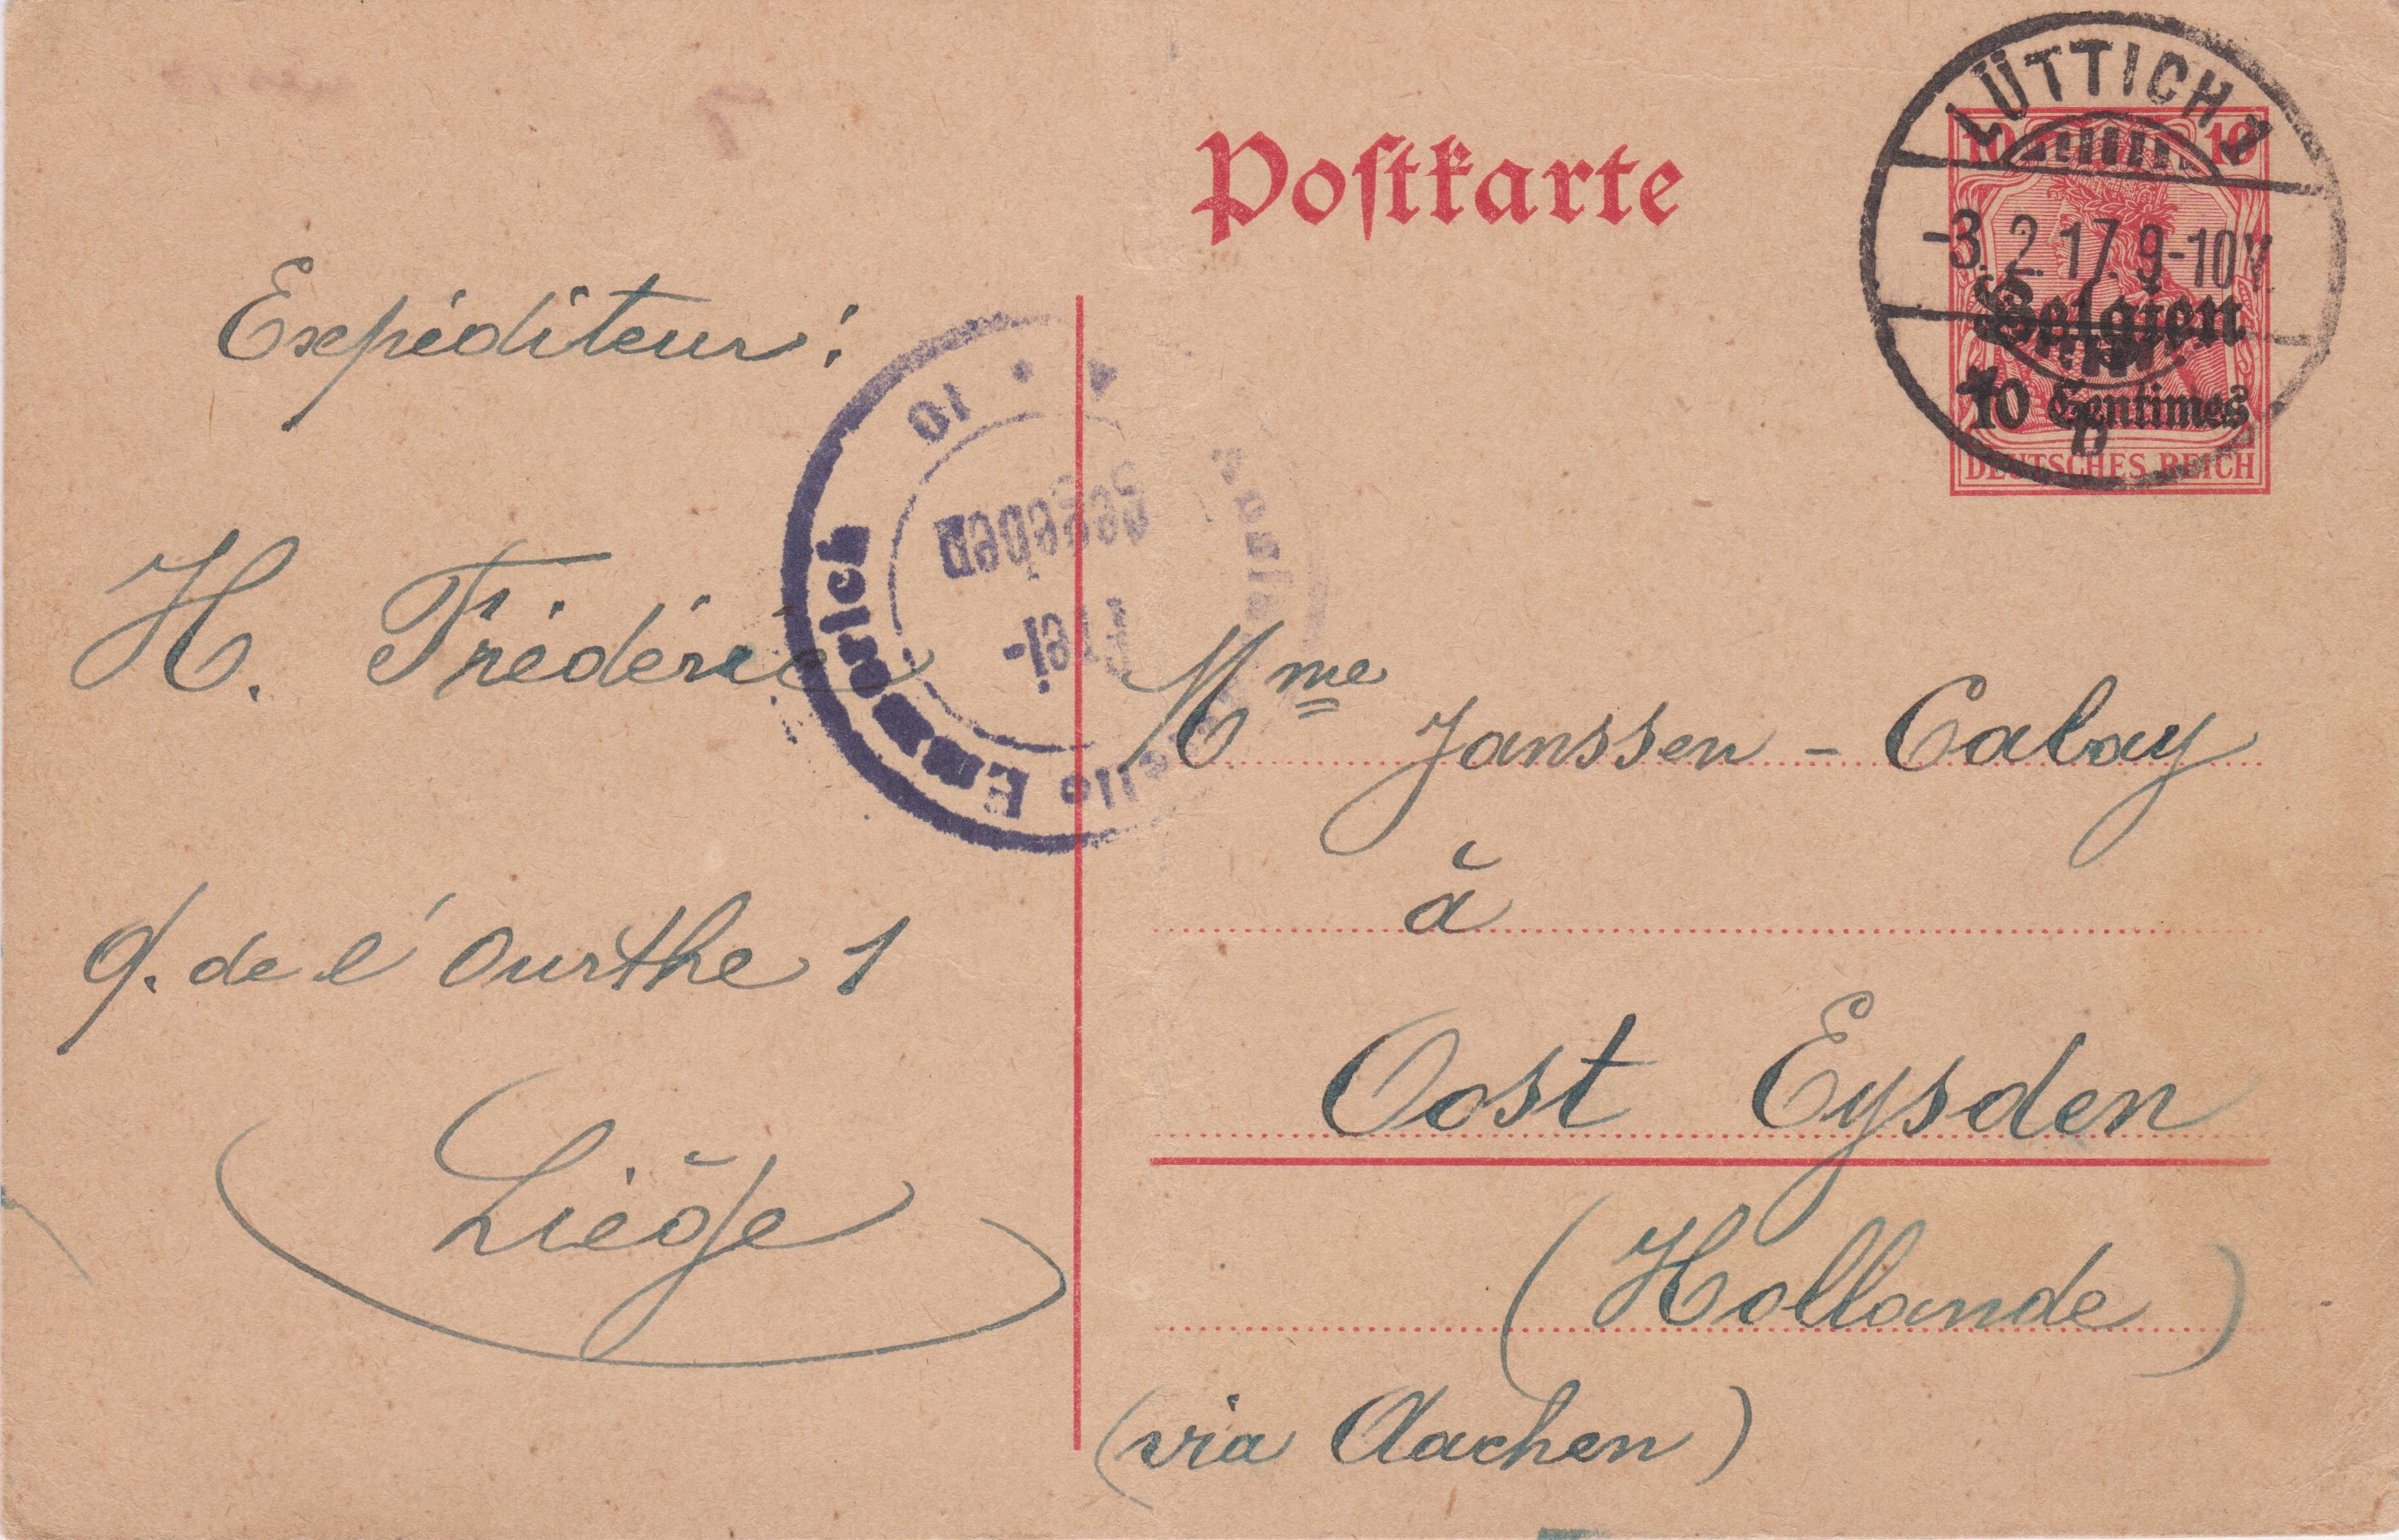 Postkarte
LÜTTICH 1
-3.2.17. 9-10V.
10 10
Belgien
10 Centimes
b
DEUTSCHES REICH
Expéditeur:
H. Frédéric
q. de l'Ourthe 1
Liège
10
Emmerich
Frei-
gegeben
Mme Janssen - Calay
à
Oost Eysden
(Hollande)
(via Aachen)